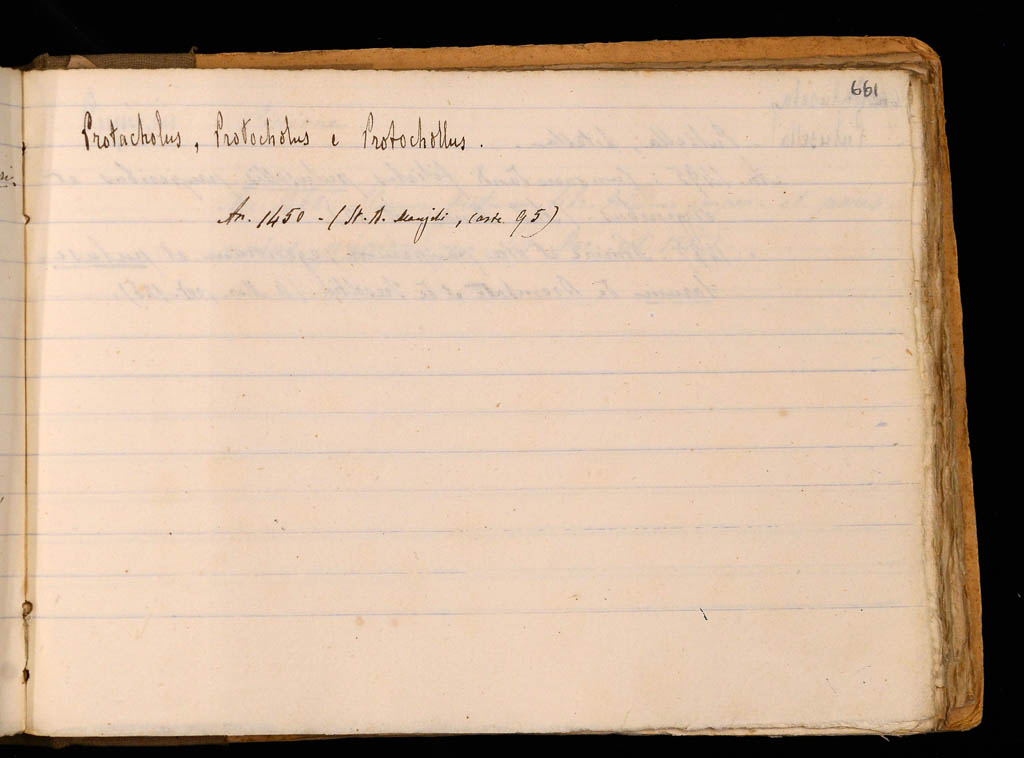 661
Protacholus, Protocholus e Protochollus.
An. 1450 - (St. A. , carte 95)